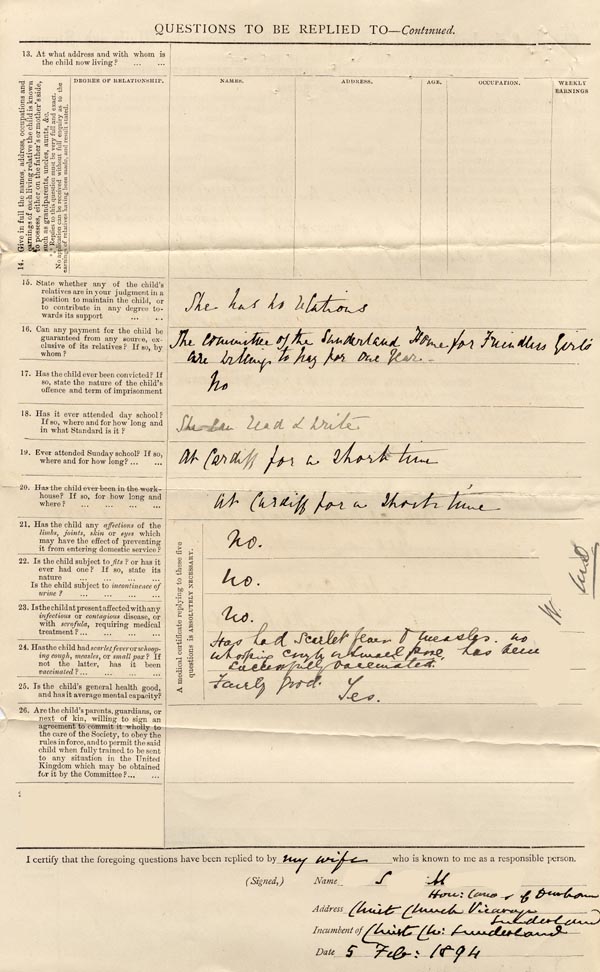 QUESTIONS TO BE REPLIED TO—Continued.
13. At what address and with whom is
the child now living? ... ...
14. Give in full the names, address, occupations and
earnings of each living relative the child is known
to possess, either on the father's or mother's side,
such as grandparents, uncles, aunts, &c.
*** Replies to this question must be very full and exact.
No application can be received without full enquiry as to the
earnings of relatives having been made, and result stated.
DEGREE OF RELATIONSHIP.
NAMES.
ADDRESS.
AGE.
OCCUPATION.
WEEKLY
EARNINGS
15. State whether any of the child's
relatives are in your judgment in a
position to maintain the child, or
to contribute in any degree to-
wards its support ... ...
She has no relations
16. Can any payment for the child be
guaranteed from any source, ex-
clusive of its relatives? If so, by
whom?
The Committee of the Sunderland Home for Friendless Girls
are willing to pay for one year.
17. Has the child ever been convicted? If
so, state the nature of the child's
offence and term of imprisonment
No
18. Has it ever attended day school?
If so, where and for how long and
in what Standard is it?
She can read & write
19. Ever attended Sunday school? If so,
where and for how long? ... ...
At Cardiff for a short time
20. Has the child ever been in the work-
house? If so, for how long and
where? ... ... ... ...
at Cardiff for a short time
A medical certificate replying to these five
questions is ABSOLUTELY NECESSARY.
21. Has the child any affections of the
limbs, joints, skin or eyes which
may have the effect of preventing
it from entering domestic service?
No.
22. Is the child subject to fits? or has it
ever had one? If so, state its
nature ... ... ... ...
Is the child subject to incontinence of
urine? ... ... ... ...
No.
23. Is the child at present affected with any
infectious or contagious disease, or
with scrofula, requiring medical
treatment? ... ... ...
No.
24. Has the child had scarlet fever or whoop-
ing cough, measles, or small pox? If
not the latter, has it been
vaccinated? ... ... ...
Has had Scarlet fever & measles. no
whooping cough or small pox, has been
successfully vaccinated.
25. Is the child's general health good,
and has it average mental capacity?
Fairly good.
Yes.
W.
26. Are the child's parents, guardians, or
next of kin, willing to sign an
agreement to commit it wholly to
the care of the Society, to obey the
rules in force, and to permit the said
child when fully trained to be sent
to any situation in the United
Kingdom which may be obtained
for it by the Committee? ... ...
I certify that the foregoing questions have been replied to by my wife who is known to me as a responsible person.
(Signed,) Name S M
Hon: Canon of Durham
Address Christ Church Vicarage
Sunderland
Incumbent of Christ Ch: Sunderland
Date 5 Feb: 1894